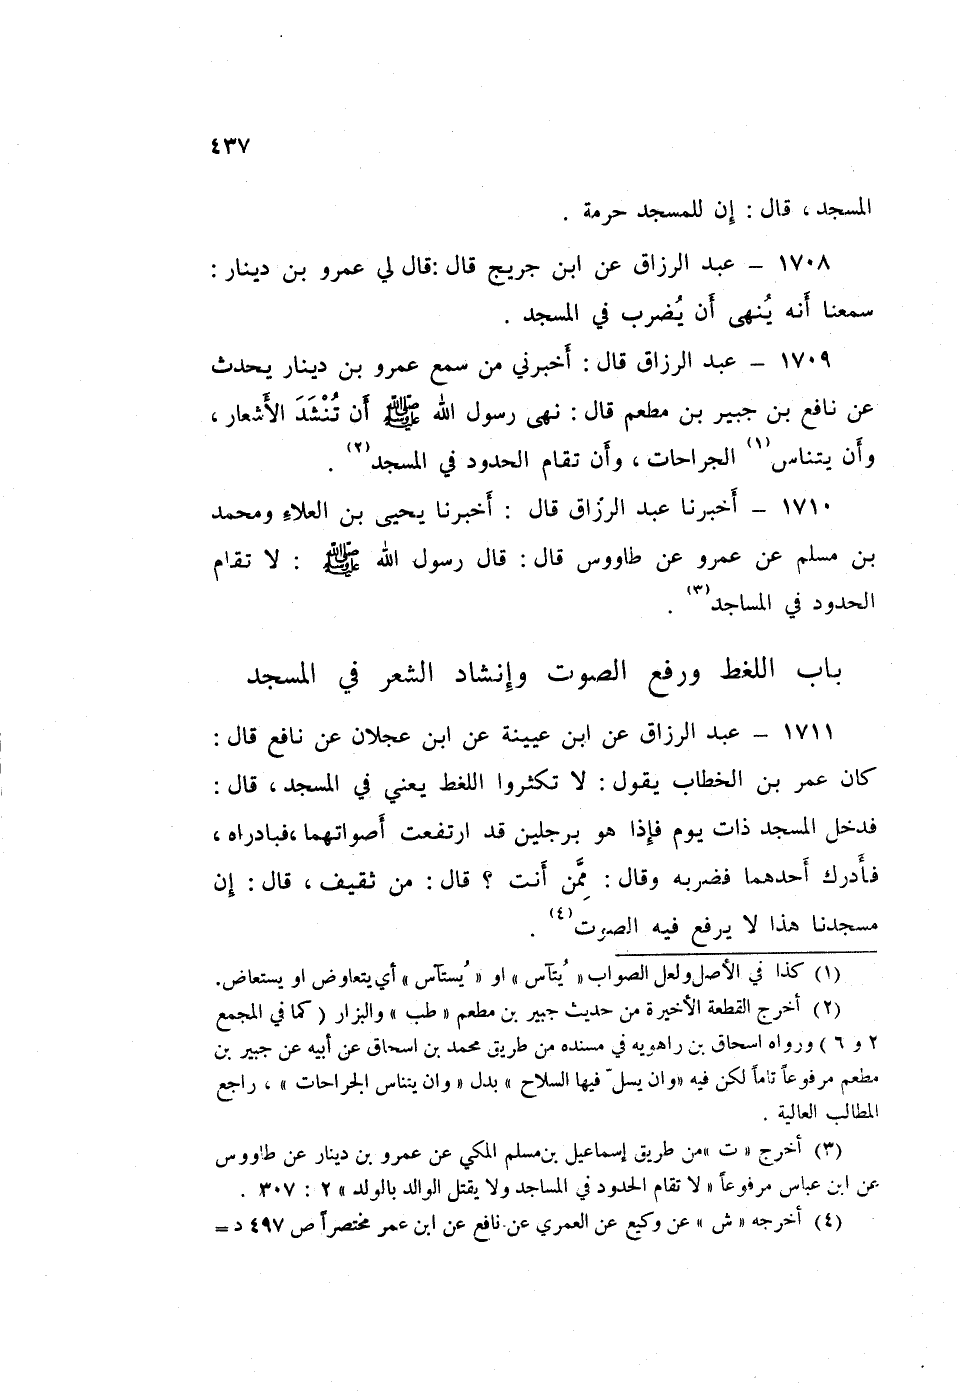 ٤٣٧
المسجد ، قال : إن للمسجد حرمة .
١٧٠٨ – عبد الرزاق عن ابن جريج قال :قال لي عمرو بن دينار :
سمعنا أَنه يُنهى أَن يُضرب في المسجد .
١٧٠٩ – عبد الرزاق قال : أَخبرني من سمع عمرو بن دينار يحدث
عن نافع بن جبير بن مطعم قال : نهى رسول الله ﷺ أَن تُنْشَدَ الأَشعار ،
وأَن يتناس(١) الجراحات ، وأَن تقام الحدود في المسجد(٢) .
١٧١٠ – أَخبرنا عبد الرزاق قال : أَخبرنا يحيى بن العلاءِ ومحمد
بن مسلم عن عمرو عن طاووس قال : قال رسول الله ﷺ : لا تقام
الحدود في المساجد(٣) .
باب اللغط ورفع الصوت وإنشاد الشعر في المسجد
١٧١١ – عبد الرزاق عن ابن عيينة عن ابن عجلان عن نافع قال :
كان عمر بن الخطاب يقول : لا تكثروا اللغط يعني في المسجد ، قال :
فدخل المسجد ذات يوم فإذا هو برجلين قد ارتفعت أَصواتهما ،فبادراه ،
فأَدرك أَحدهما فضربه وقال : مِمَّن أَنت ؟ قال : من ثقيف ، قال : إن
مسجدنا هذا لا يرفع فيه الصوت(٤) .
(١) كذا في الأصل ولعل الصواب « يُتآس » او « يُستآس » أي يتعاوض او يستعاض.
(٢) أخرج القطعة الأخيرة من حديث جبير بن مطعم « طب » والبزار ( كما في المجمع
٢ و ٦ ) ورواه اسحاق بن راهويه في مسنده من طريق محمد بن اسحاق عن أبيه عن جبير بن
مطعم مرفوعاً تاماً لكن فيه «وان يسلّ فيها السلاح » بدل « وان يتناس الجراحات » ، راجع
المطالب العالية .
(٣) أخرج « ت »من طريق إسماعيل بن مسلم المكي عن عمرو بن دينار عن طاووس
عن ابن عباس مرفوعاً « لا تقام الحدود في المساجد ولا يقتل الوالد بالولد » ٢ : ٣٠٧ .
(٤) أخرجه « ش » عن وكيع عن العمري عن نافع عن ابن عمر مختصراً ص ٤٩٧ د =